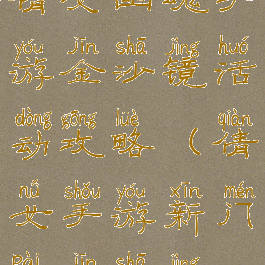 yóu jīn shā jìng huó
游金沙镜活
dòng gōng lüè qiàn
动攻略（倩
nǚ shǒu yóu xīn mén
女手游新门
pài jīn shā jìng